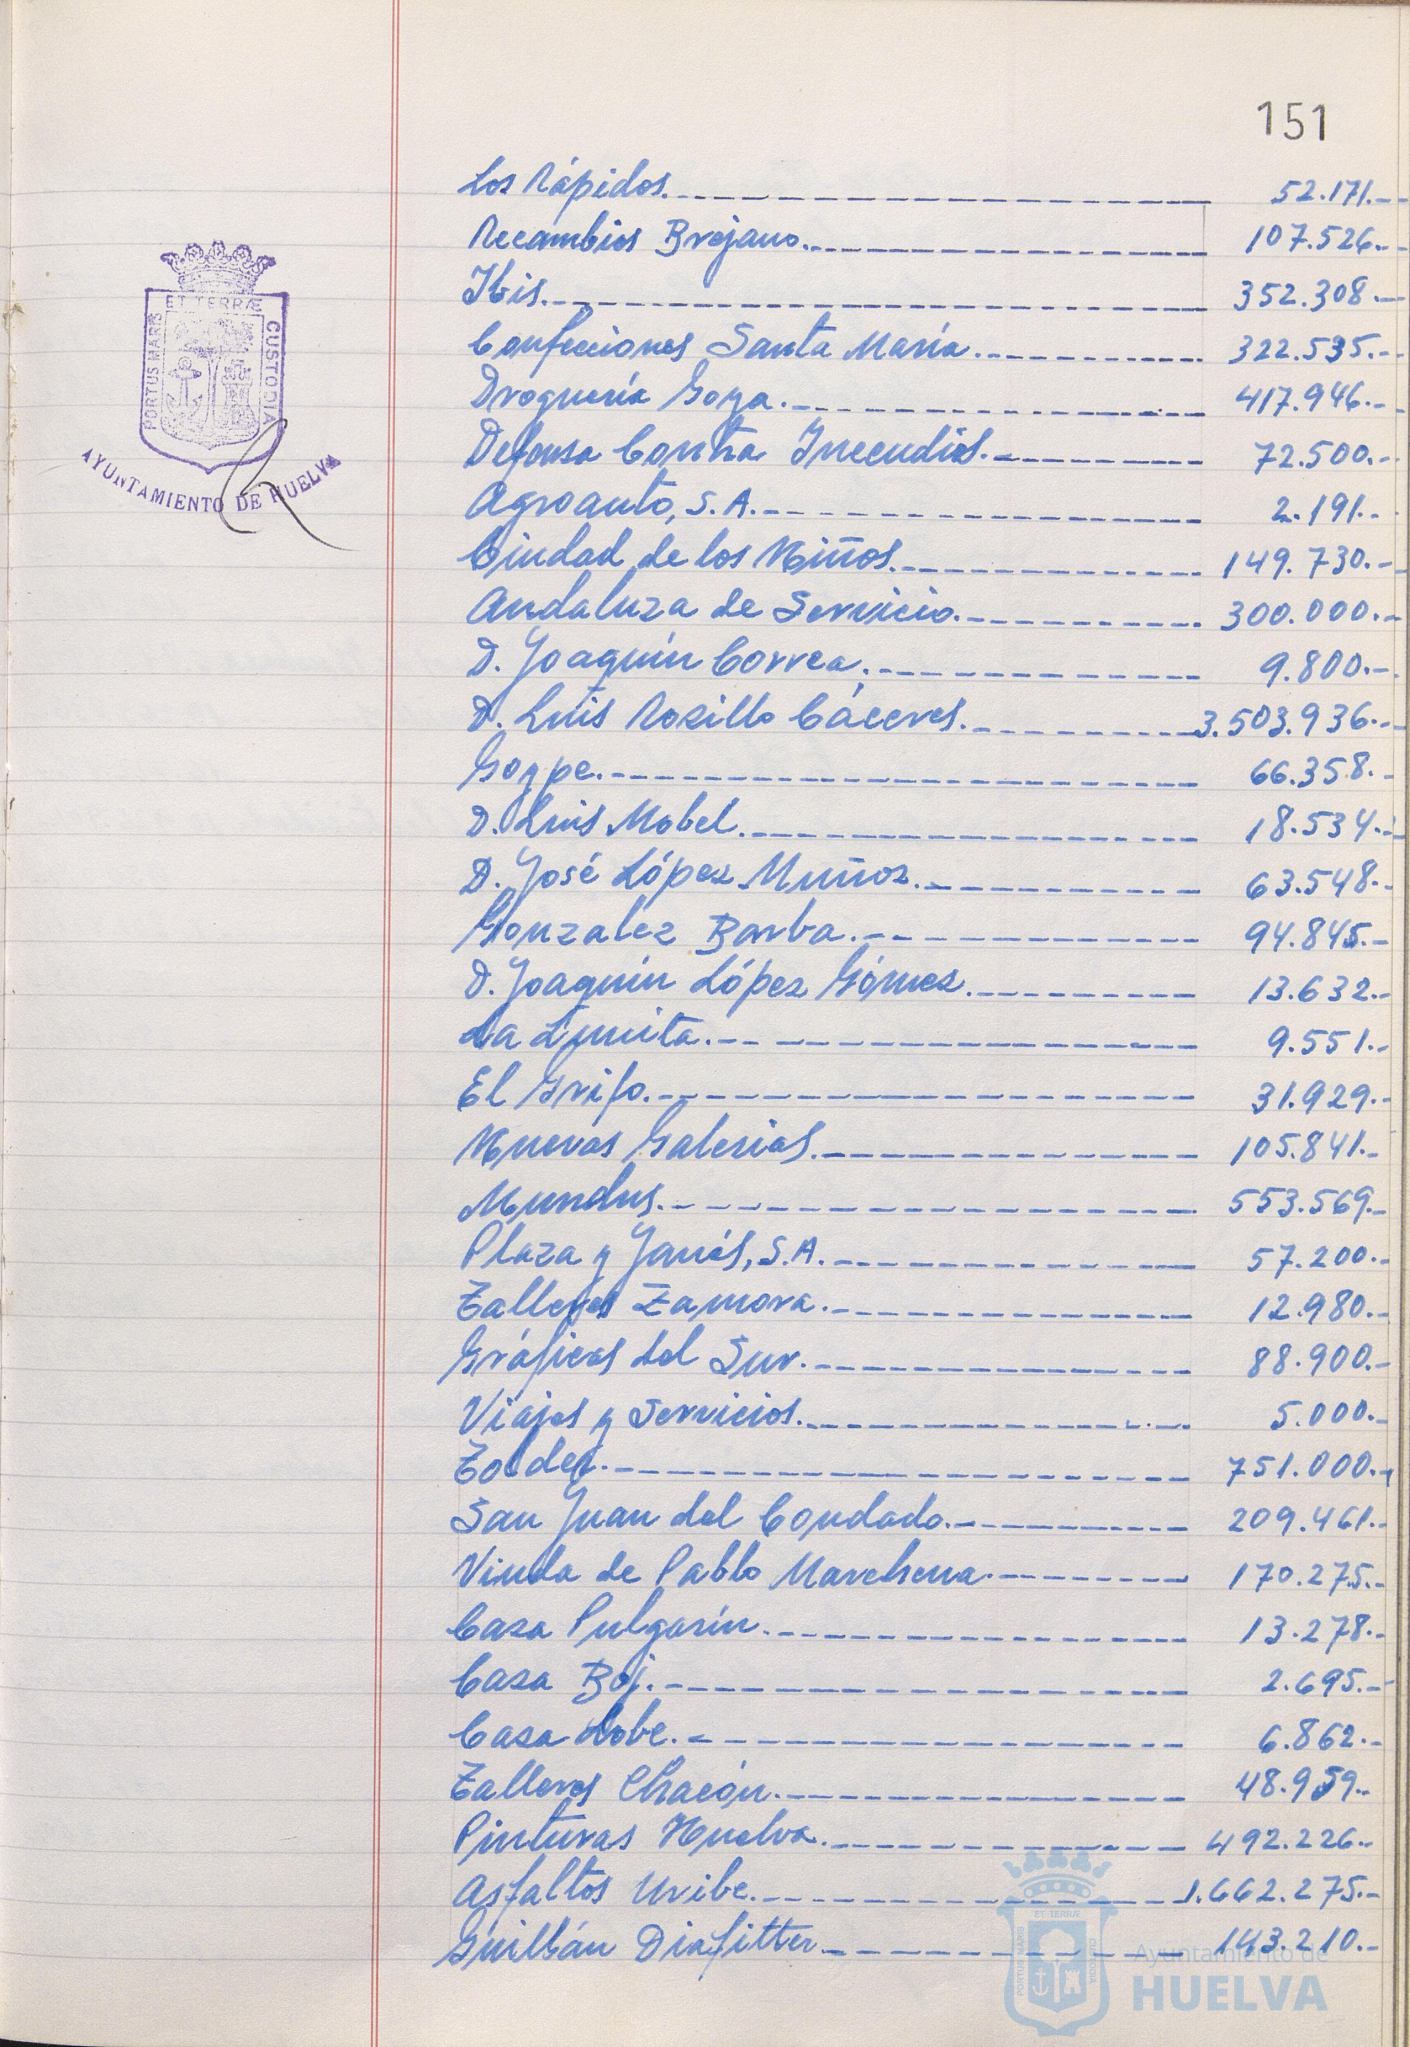 151
Los Rápidos. 52.171.-
Recambios Brejano. 107.526.-
Ibis. 352.308.-
Confecciones Santa María. 322.535.-
Droguería Goya. 417.946.-
Defensa Contra Incendios. 72.500.-
Agroauto, S.A. 2.191.-
Ciudad de los Niños. 149.730.-
Andaluza de Servicio. 300.000.-
D. Joaquín Correa. 9.800.-
D. Luis Rozillo Cáceres. 3.503.936.-
Goype. 66.358.-
D. Luis Mobel. 18.534.-
D. José López Muñoz. 63.548.-
Gonzalez Barba. 94.845.-
D. Joaquín López Gómez. 13.632.-
La 9.551.-
El Grifo. 31.929.-
Nuevas Galerías. 105.841.-
Mundus. 553.569.-
Plaza y Janés, S.A. 57.200.-
Talleres Zamora. 12.980.-
Gráficas del Sur. 88.900.-
Viajes y Servicios. 5.000.-
751.000.-
San Juan del Condado. 209.461.-
Viuda de Pablo Marchena. 170.275.-
Casa Pulgarín. 13.278.-
Casa Boj. 2.695.-
Casa Lobe. 6.862.-
Talleres Chacón. 48.959.-
Pinturas Huelva. 492.226.-
Asfaltos Uribe. 1.662.275.-
Guillán Diafitter 143.210.-
PORTUS MARIS ET TERRÆ CUSTODIA
AYUNTAMIENTO DE HUELVA
PORTUS MARIS ET TERRÆ CUSTODIA
Ayuntamiento de
HUELVA